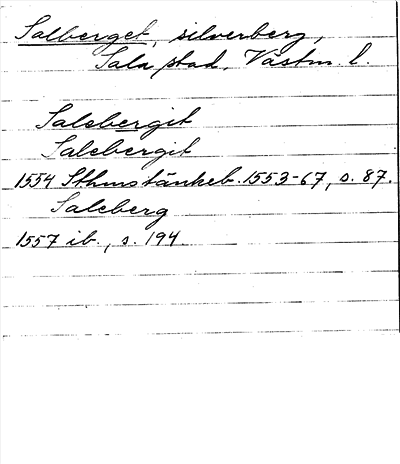 Salberget, silverberg,
Sala stad, Västm. l.
Salsbergit
Salebergit
1554 Sthms tänkeb. 1553-67, s. 87.
Saleberg
1557 ib., s. 194